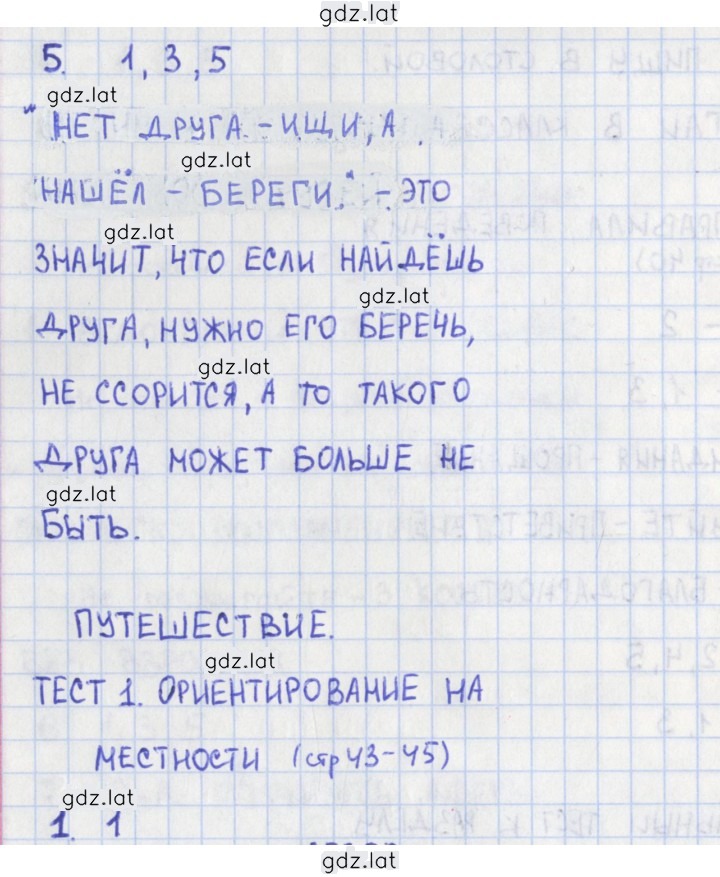 gdz.lat
5. 1, 3, 5
gdz.lat
"НЕТ ДРУГА - ИЩИ, А
gdz.lat
НАШЁЛ - БЕРЕГИ." - ЭТО
gdz.lat
ЗНАЧИТ, ЧТО ЕСЛИ НАЙДЁШЬ
gdz.lat
ДРУГА, НУЖНО ЕГО БЕРЕЧЬ,
gdz.lat
НЕ ССОРИТСЯ, А ТО ТАКОГО
ДРУГА МОЖЕТ БОЛЬШЕ НЕ
gdz.lat
БЫТЬ.
ПУТЕШЕСТВИЕ.
gdz.lat
ТЕСТ 1. ОРИЕНТИРОВАНИЕ НА
МЕСТНОСТИ (стр 43-45)
gdz.lat
1. 1
gdz.lat